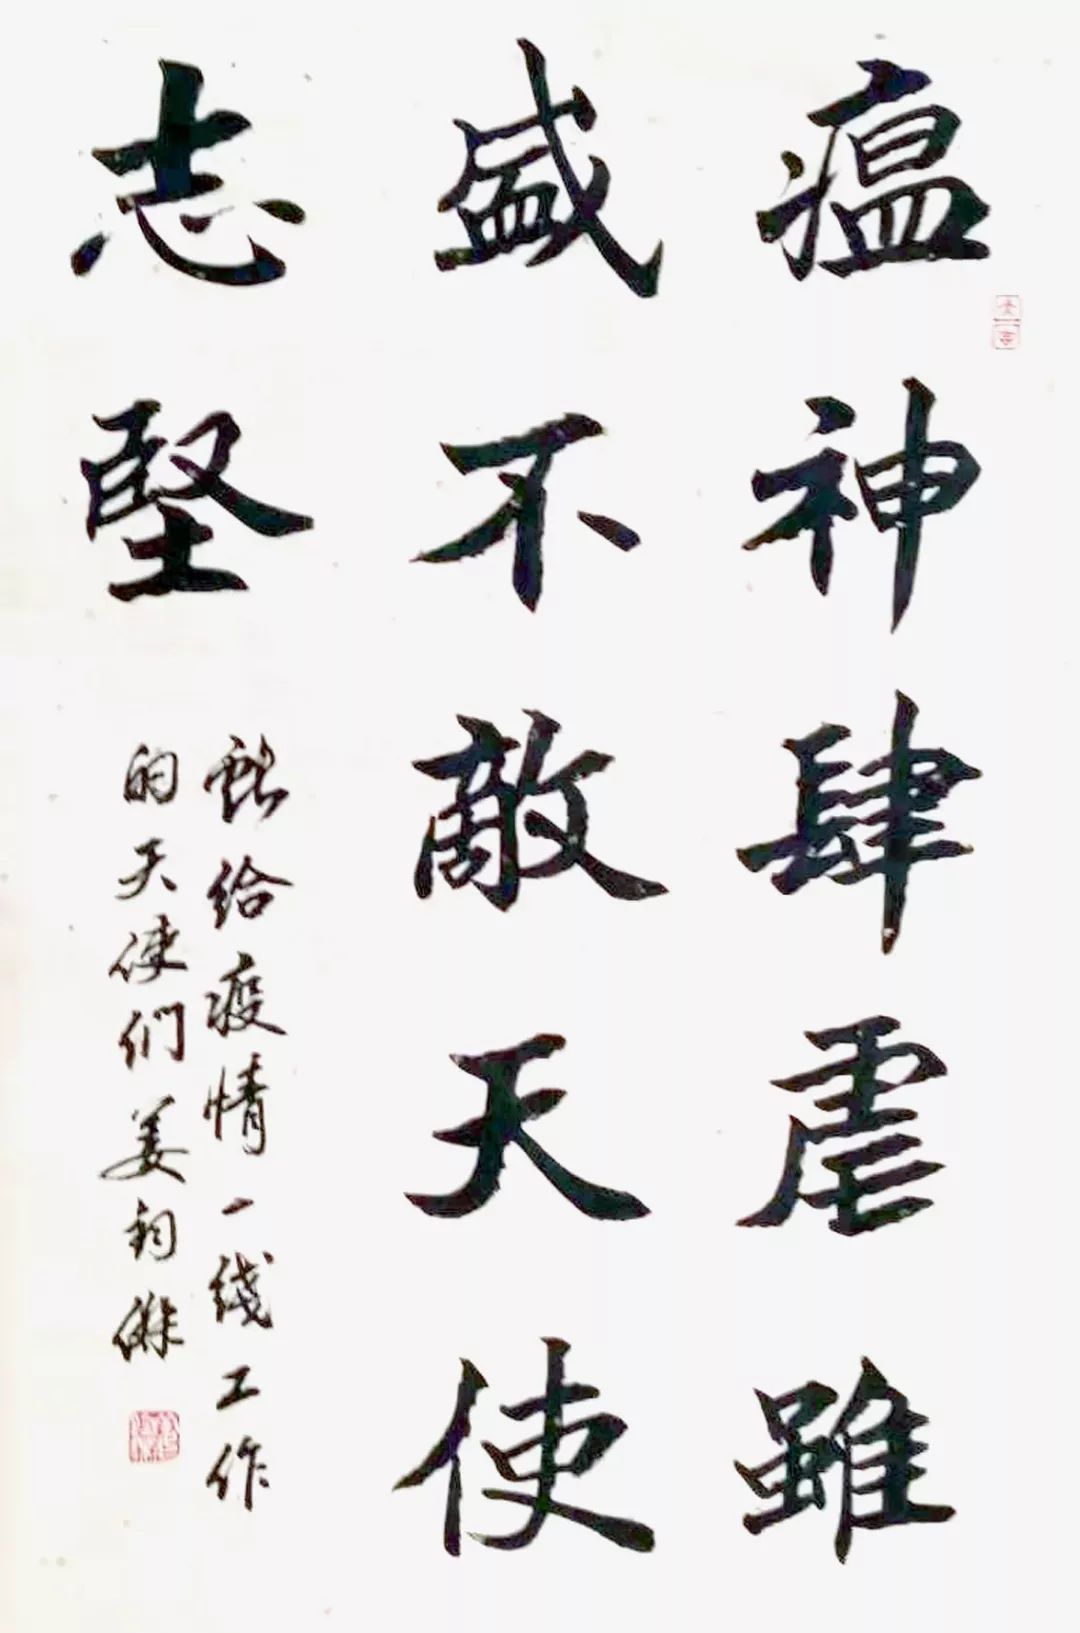 瘟神肆虐雖
盛不敵天使
志堅
献给疫情一线工作
的天使们姜傑